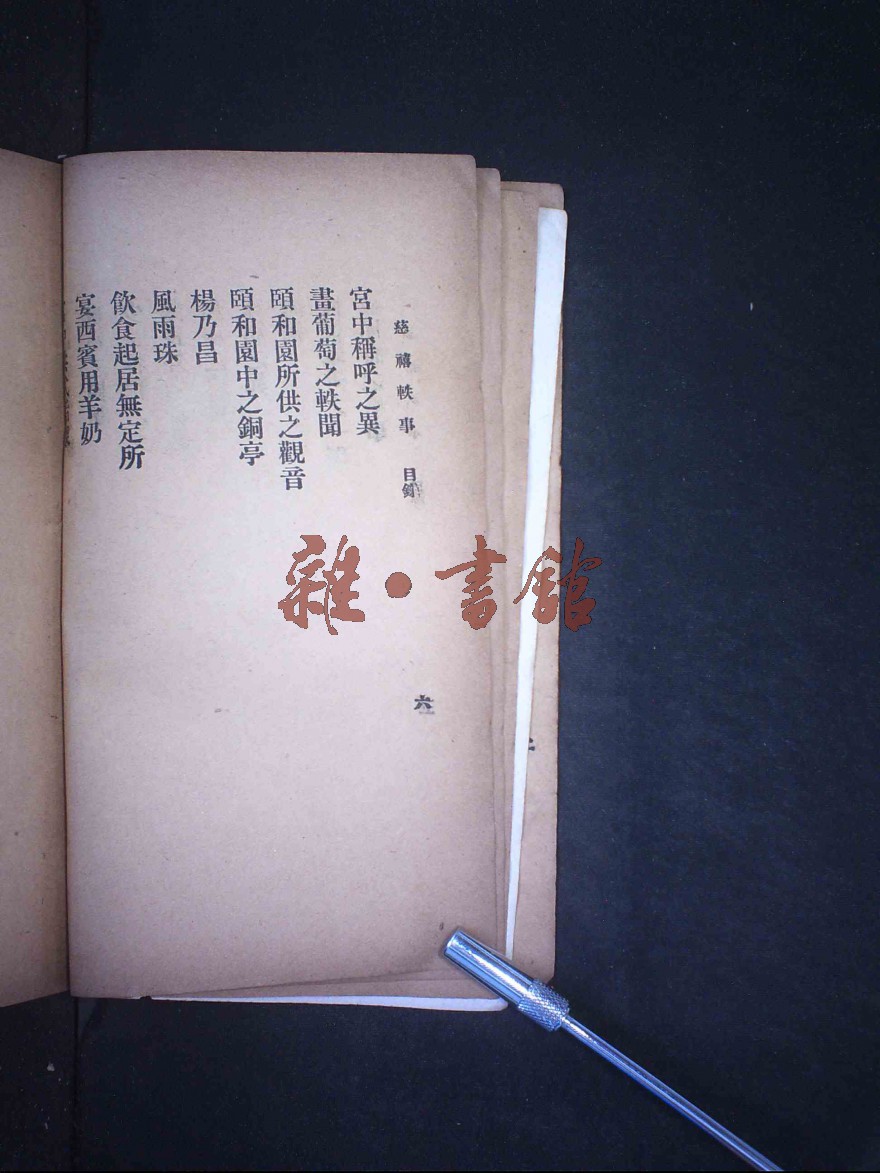 慈禧軼事 目錄
六
宮中稱呼之異
畫葡萄之軼聞
頤和園所供之觀音
頤和園中之銅亭
楊乃昌
風雨珠
飲食起居無定所
宴西賓用羊奶
雜·書館